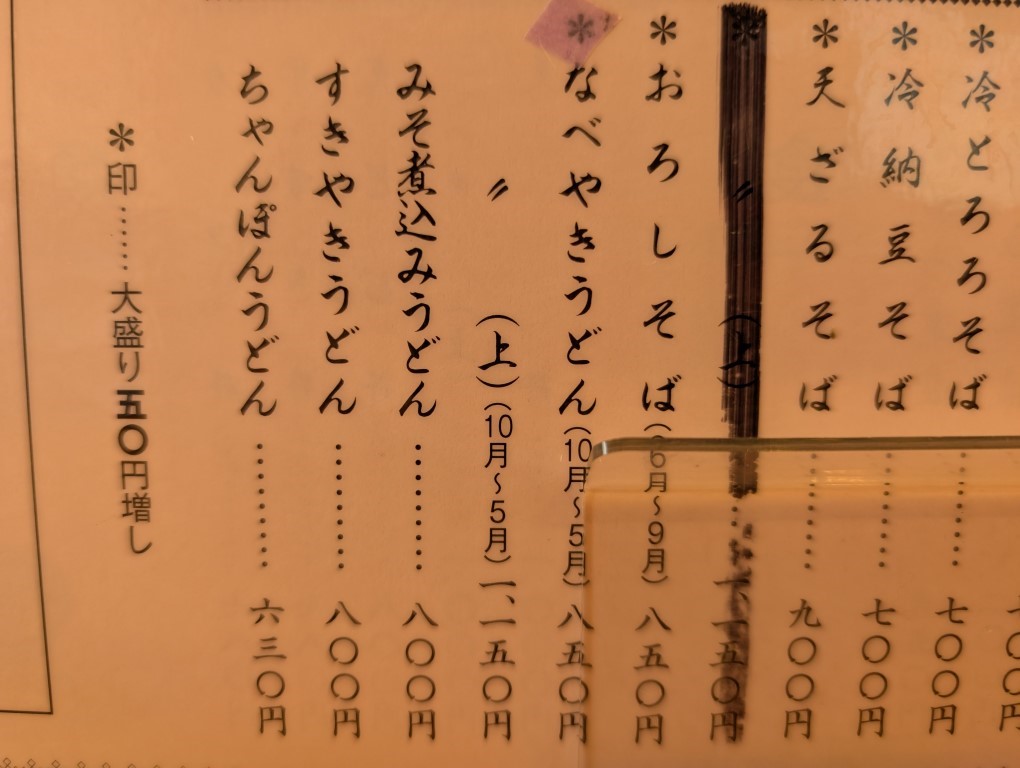 ＊冷とろろそば………七〇〇円
＊冷納豆そば………七〇〇円
＊天ざるそば………九〇〇円
＊〃（上）………一、一五〇円
＊おろしそば（6月〜9月）八五〇円
＊なべやきうどん（10月〜5月）八五〇円
〃（上）（10月〜5月）一、一五〇円
みそ煮込みうどん………八〇〇円
すきやきうどん………八〇〇円
ちゃんぽんうどん………六三〇円
＊印……大盛り五〇円増し